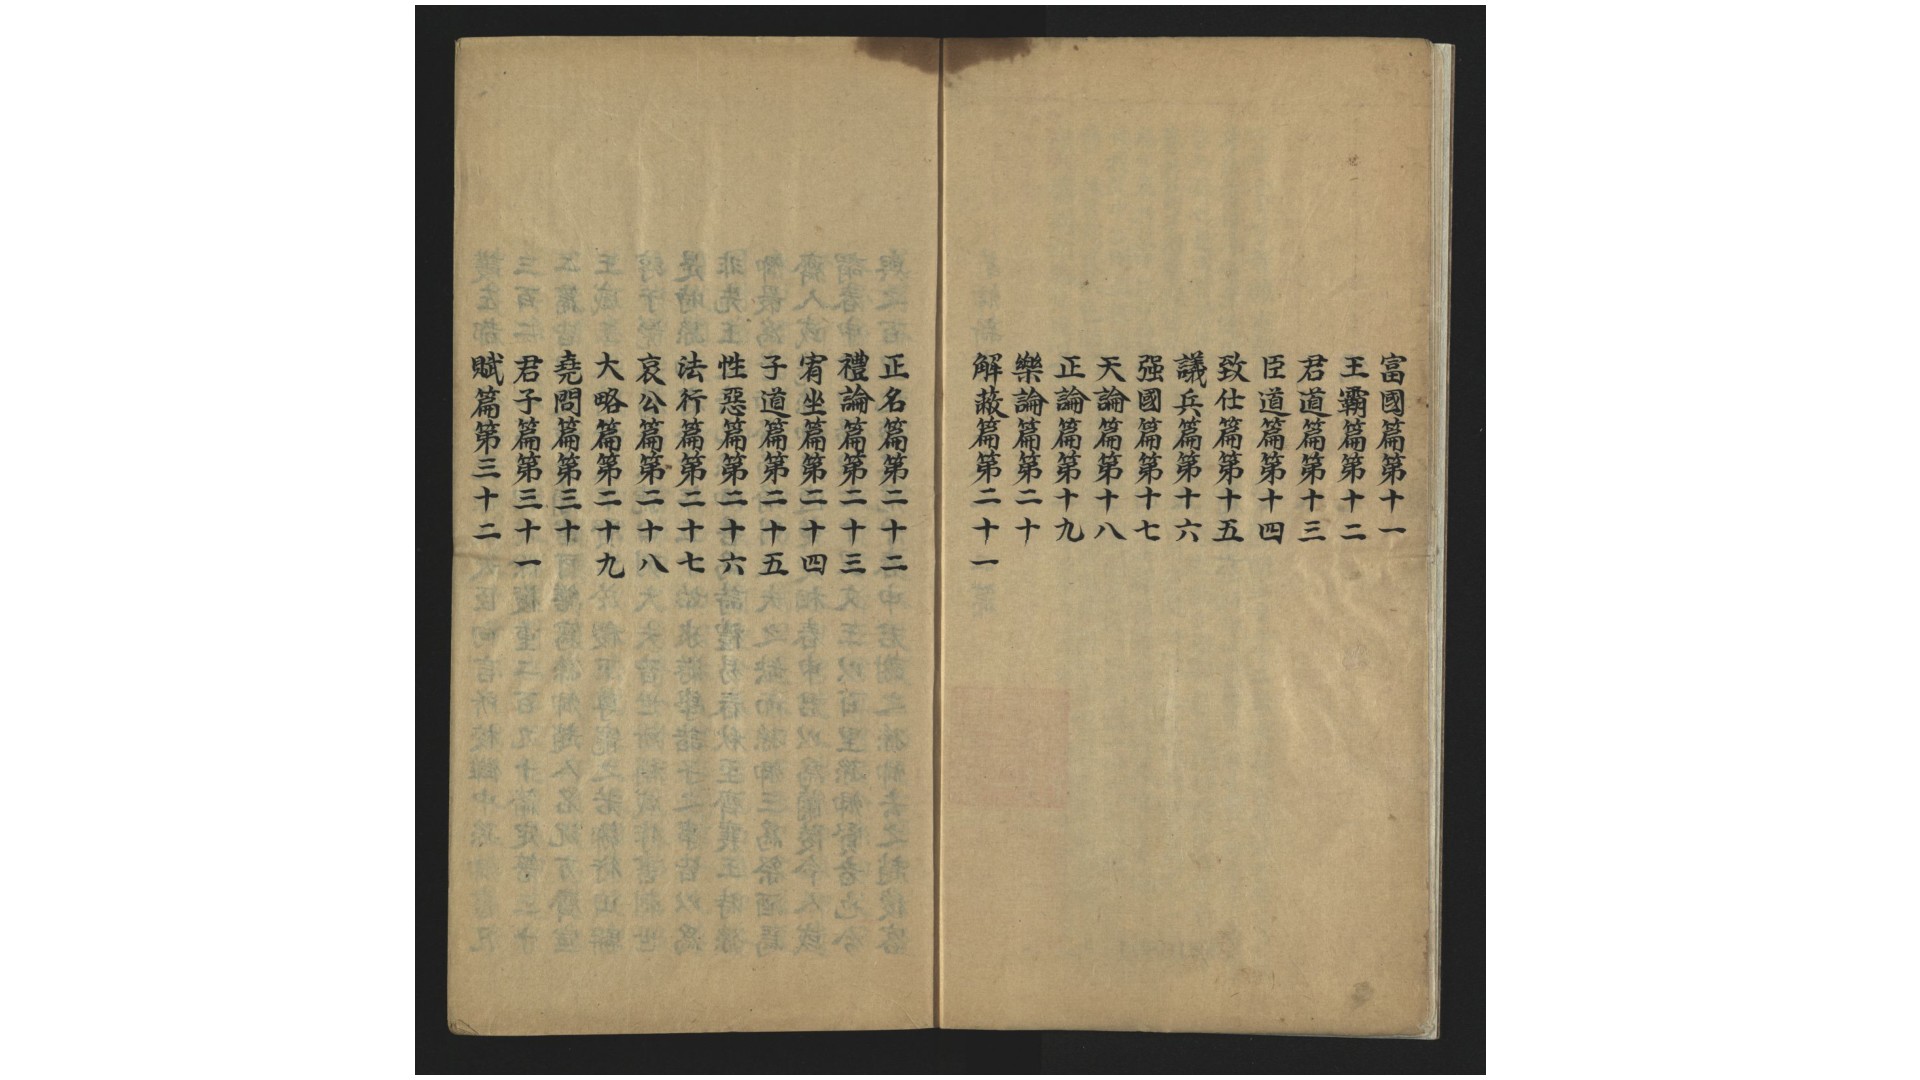 富國篇第十一
王霸篇第十二
君道篇第十三
臣道篇第十四
致仕篇第十五
議兵篇第十六
强國篇第十七
天論篇第十八
正論篇第十九
樂論篇第二十
解蔽篇第二十一
正名篇第二十二
禮論篇第二十三
宥坐篇第二十四
子道篇第二十五
性惡篇第二十六
法行篇第二十七
哀公篇第二十八
大略篇第二十九
堯問篇第三十
君子篇第三十一
賦篇第三十二